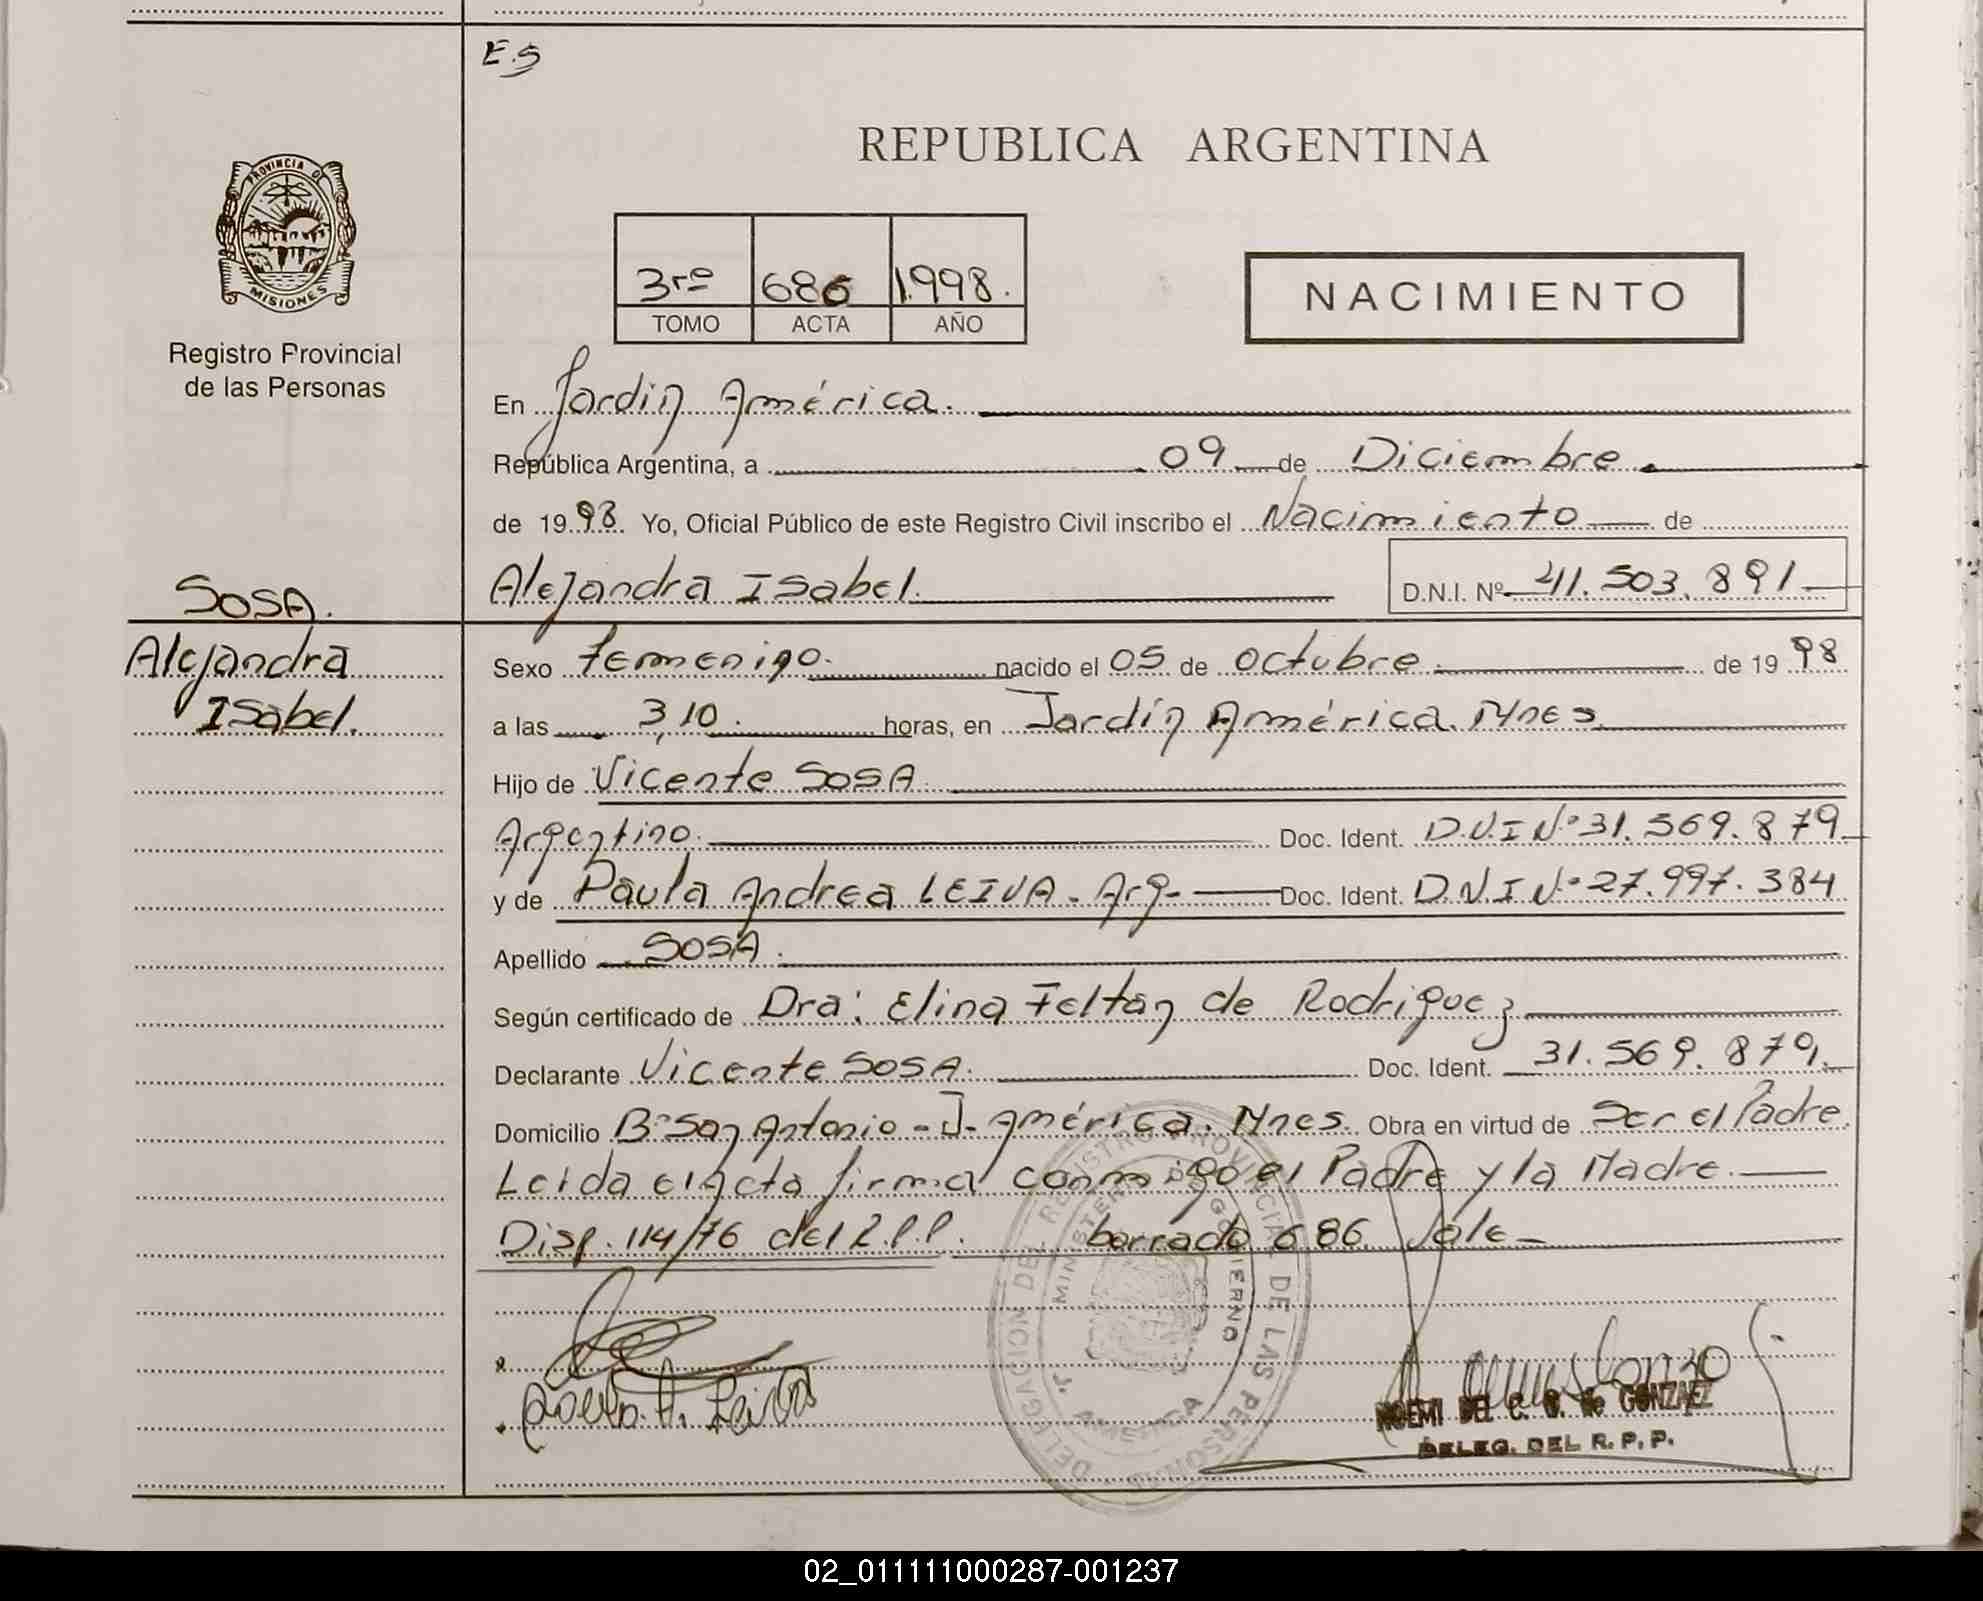 E.S
PROVINCIA D
MISIONES
Registro Provincial
de las Personas
REPUBLICA ARGENTINA
3ro 686 1.998.
TOMO ACTA AÑO
NACIMIENTO
En Jardin América.
República Argentina, a 09 de Diciembre
de 19 98. Yo, Oficial Público de este Registro Civil inscribo el Nacimiento de
Alejandra Isabel. D.N.I. Nº 41.503.891
SOSA.
Alejandra
Isabel.
Sexo Femenino. nacido el 05 de octubre de 19 98
a las 3,10. horas, en Jardín América. Mnes.
Hijo de Vicente SOSA.
Argentino. Doc. Ident. D.N.I Nº 31.569.879
y de Paula Andrea LEIVA - Arg- Doc. Ident. D.N.I Nº 27.997.384
Apellido SOSA.
Según certificado de Dra: Elina Feltan de Rodriguez
Declarante Vicente SOSA. Doc. Ident. 31.569.879.
Domicilio Bº San Antonio - J. América. Mnes. Obra en virtud de Ser el Padre.
Leida el acta firman conmigo el Padre y la Madre.
Disp. 114/76 del R.P.P. borrado 686 Vale-
DELEGACION DEL REGISTRO PROVINCIAL DE LAS PERSONAS
MINISTERIO DE GOBIERNO
J. AMERICA
Paula A. Leiva
NOEMI DEL C. de GONZALEZ
DELEG. DEL R.P.P.
02_011111000287-001237